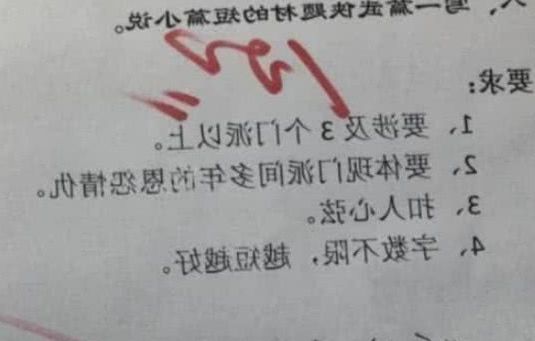 八、写一篇武侠题材的短篇小说。
要求：
1、要涉及3个门派以上。
2、要体现门派间多年的恩怨情仇。
3、扣人心弦。
4、字数不限，越短越好。